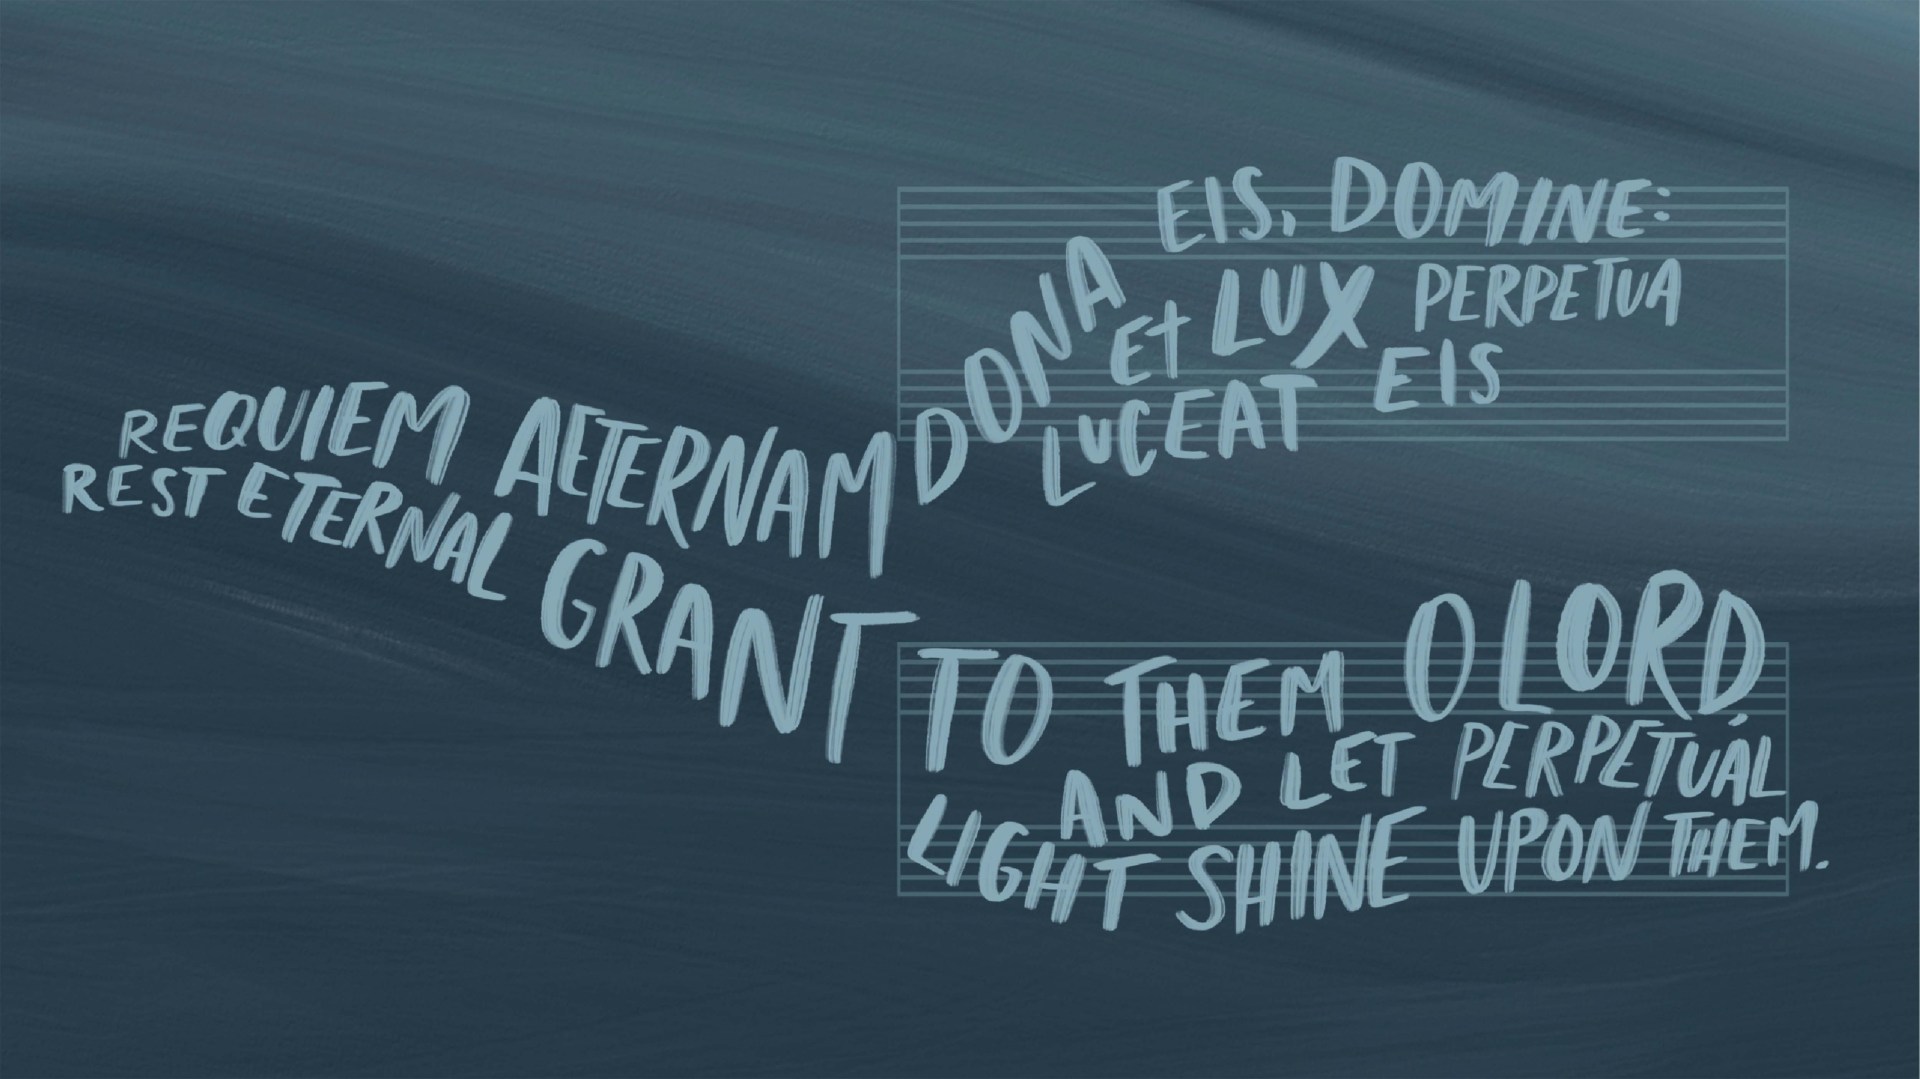 REQUIEM AETERNAM DONA EIS, DOMINE:
ET LUX PERPETUA
LUCEAT EIS
REST ETERNAL GRANT TO THEM O LORD,
AND LET PERPETUAL
LIGHT SHINE UPON THEM.